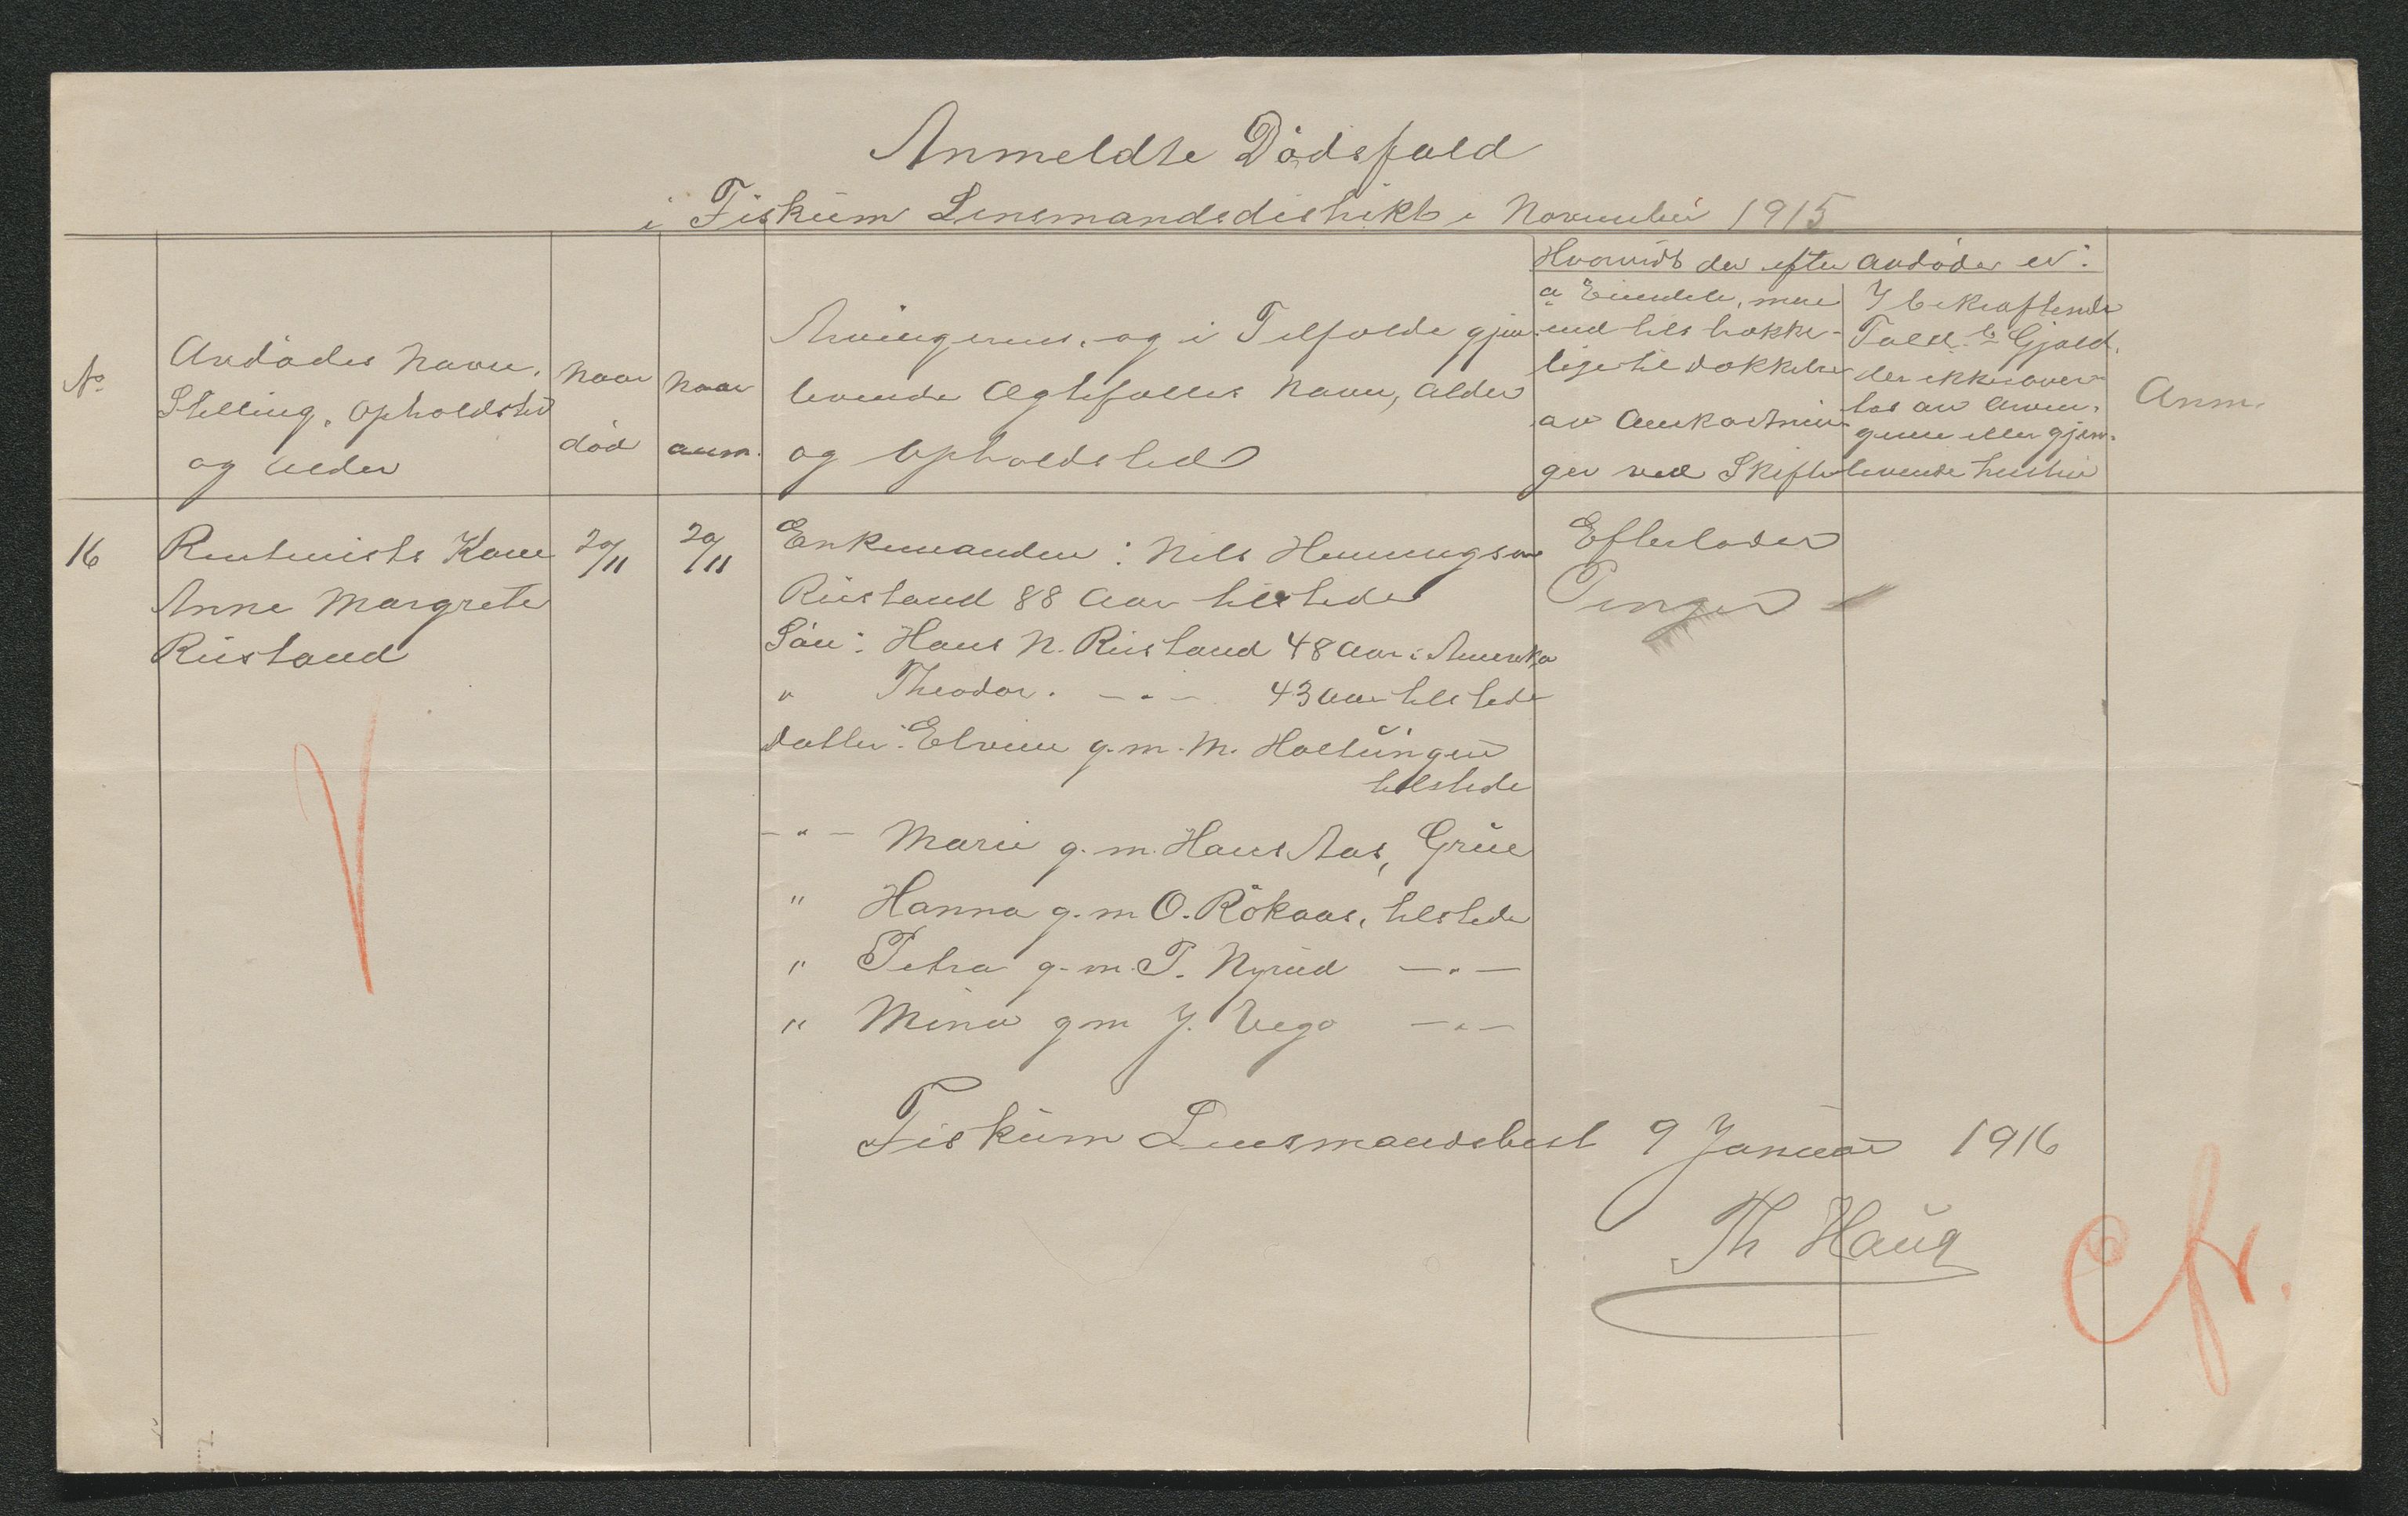 Anmeldte Dødsfald
i Fiskum Lensmandsdistrikt i November 1915
No
Avdødes Navn,
Stilling, Opholdsted
og Alder
Naar
død
Naar
anm.
Arvingernes, og i Tilfælde gjen-
levende Ægtefælles Navn, Alder
og Opholdsted
Hvorvidt der efter avdøde er:
a Eiendele, mere
end tilstrække-
lige til Dækkelse
av Omkostnin-
ger ved Skifte
I bekræftende
Fald b Gjæld,
der ikke over-
tas av Arvin-
gerne eller gjen-
levende Hustru
Anm.
16
Rentenists Kone
Anne Margrete
Rustand
20/11
20/11
Enkemanden: Nils Henningsen
Rustand 88 Aar tilstede
Søn: Hans N. Rustand 48 Aar i Amerika
" Theodor. - " - 43 Aar tilstede
Datter: Elvine g. m. M. Holtungen
tilstede
- " - Marie g. m. Hans Aas, Grue
" Hanna g. m O. Røkaas, tilstede
" Petra g. m. P. Nyrud - " -
" Mina g m J. Vego - " -
Efterlader
Penger
Fiskum Lensmandsbest 9 Januar 1916
Th Haug
Cfr.